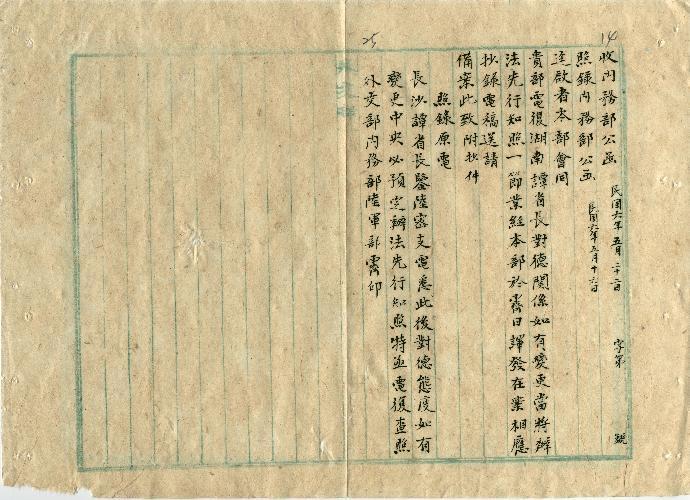 14
25
收內務部公函 民國六年五月二十二日 字第 號
照錄內務部公函 民國六年五月十六日
逕啟者本部會同
貴部電復湖南譚省長對德關係如有變更當將辦
法先行知照一節業經本部於霽日譯發在案相應
抄錄電稿送請
備案此致附抄件
照錄原電
長沙譚省長鑒陸密支電悉此後對德態度如有
變更中央必預定辦法先行知照特亟電復查照
外交部內務部陸軍部霽印